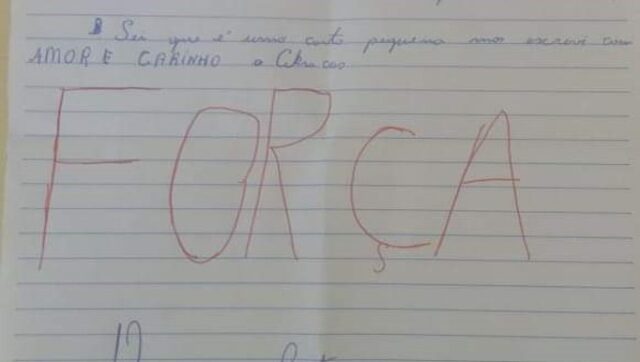 Sei que é uma carta pequena mas escrevi com
AMOR E CARINHO e
FORÇA